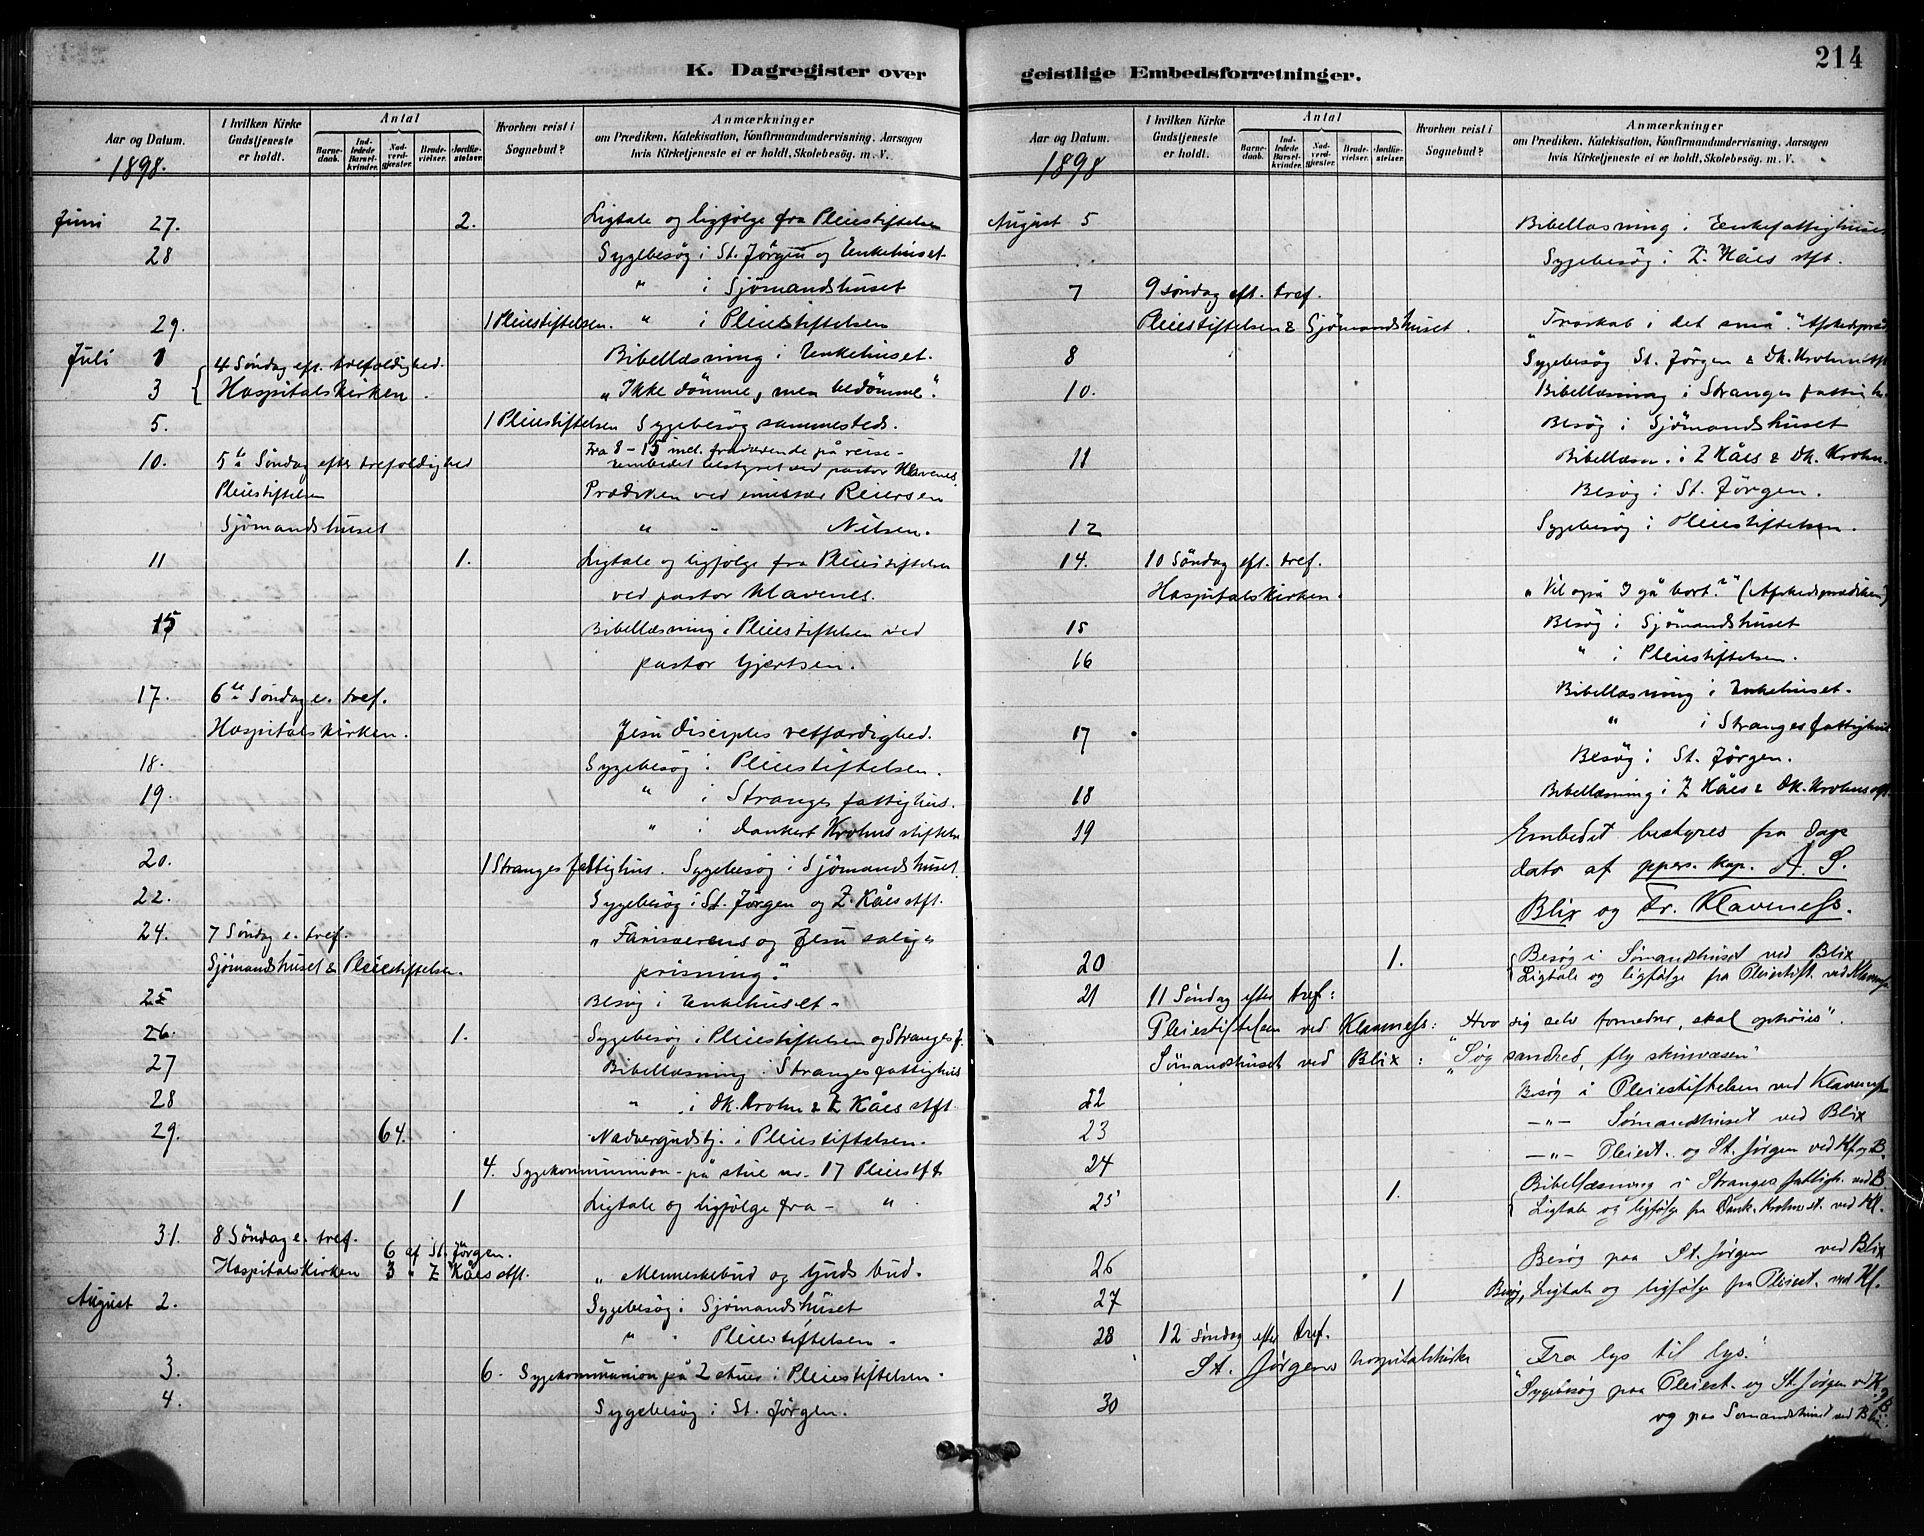 214
K. Dagregister over geistlige Embedsforretninger.
Aar og Datum.
I hvilken Kirke Gudstjeneste er holdt.
Antal
Barne-daab.
Ind-ledede Barsel-kvinder.
Nad-verd-gjester.
Brude-vielser.
Jordfæ-stelser.
Hvorhen reist i Sognebud?
Anmærkninger
om Prædiken, Katekisation, Konfirmandundervisning, Aarsagen
hvis Kirketjeneste ei er holdt, Skolebesøg. m. V.
1898.
Juni 27. 2. Ligtale og ligfølge fra Pleiestiftelsen
28 Sygebesøg i St. Jörgen og Enkehuset
" i Sjömandshuset
29. 1 Pleiestiftelsen. " i Pleiestiftelsen
Juli 1 Bibellæsning i Enkehuset.
4 Söndag eft. trefoldighed.
3 Hospitalskirken. "Ikke dömme, men bedömme".
5. 1 Pleiestiftelsen Sygebesøg sammesteds.
Fra 8-15 incl. fraværende på reise-
10. 5te Söndag efter trefoldighed embedet bestyret ved pastor Klavenes.
Pleiestiftelsen Prædiken ved emissær Reiersen
Sjömandshuset " " Nilsen.
11 1. Ligtale og ligfølge fra Pleiestiftelsen
ved pastor Klavenes.
15 Bibellæsning i Pleiestiftelsen ved
pastor Gjertsen.
17. 6te Söndag e. tref.
Hospitalskirken. Jesu disciples retfærdighed.
18. Sygebesøg i Pleiestiftelsen.
19. " i Stranges fattighus.
" i Dankert Krohns stiftelse
20. 1 Stranges fattighus. Sygebesøg i Sjömandshuset.
22. Sygebesøg i St. Jörgen og Z. Kåes stft.
24. 7 Söndag e. tref. "Farisæerens og Jesu salige
Sjömandshuset & Pleiestiftelsen. prisning".
25 Besøg i Enkehuset.
26. 1. Sygebesøg i Pleiestiftelsen og Stranges f.
27 Bibellæsning i Stranges fattighus
28 " i Dk. Krohn & Z Kåes stft.
29. 64. Nadvergudstj. i Pleiestiftelsen.
4. Sygekommunion på stue nr. 17 Pleiestft
1 Ligtale og ligfølge fra "
31. 8 Söndag e. tref.
6 af St. Jörgen.
Hospitalskirken 3 " Z Kåes stft. "Menneskebud og Guds bud.
August 2. Sygebesøg i Sjömandshuset
" " Pleiestiftelsen.
3. 6. Sygekommunion på 2 stuer i Pleiestiftelsen.
4. Sygebesøg i St. Jörgen.
Aar og Datum.
I hvilken Kirke Gudstjeneste er holdt.
Antal
Barne-daab.
Ind-ledede Barsel-kvinder.
Nad-verd-gjester.
Brude-vielser.
Jordfæ-stelser.
Hvorhen reist i Sognebud?
Anmærkninger
om Prædiken, Katekisation, Konfirmandundervisning, Aarsagen
hvis Kirketjeneste ei er holdt, Skolebesøg. m. V.
1898
August 5 Bibellæsning i Enkefattighuset
Sygebesøg i Z. Kåes stft.
7 9 söndag eft. tref.
Pleiestiftelsen & Sjömandshuset. "Troskab i det små."
8 Sygebesøg St. Jörgen & Dk. Krohns stft
10. Bibellæsning i Stranges fattigh.
Besøg i Sjömandshuset
11 Bibellæsn. i Z Kåes & Dk. Krohn.
Besøg i St. Jörgen.
12 Sygebesøg i Pleiestiftelsen.
14. 10 Söndag eft. tref.
Hospitalskirken. "Vil også I gå bort?" (Afskedsprædiken)
15 Besøg i Sjömandshuset
16 " i Pleiestiftelsen.
Bibellæsning i Enkehuset.
17 " i Stranges fattighus
Besøg i St. Jörgen.
18 Bibellæsning i Z Kåes & Dk. Krohns stft.
19 Embedet bestyres fra dags
dato af pers. kap. A. S.
Blix og Fr. Klaveness.
20 1. Besøg i Sømandshuset ved Blix
Ligtale og ligfølge fra Pleiestift. ved Klaveness
21 11 Søndag efter tref:
Pleiestiftelsen ved Klaveness: "Hvo sig selv fornedrer, skal ophøies".
Sømandshuset ved Blix: "Søg sandhed, fly skinvæsen"
22 Besøg i Pleiestiftelsen ved Klaveness
23 -"- Sømandhuset ved Blix
24 -"- Pleiest. og St. Jørgen ved Kl og B.
25 1. Bibellæsning i Stranges fattigh. ved B.
Ligtale og ligfølge fra Dank. Krohns st. ved Kl.
26 Besøg paa St. Jørgen ved Blix
27 1 Besøg, Ligtale og ligfølge fra Pleiest. ved Kl.
28 12 søndag efter tref.
St. Jørgens hospitalskirke "Fra lys til lys."
30 Sygebesøg paa Pleiest. og St. Jørgen ved K. & B.
og paa Sømandshuset ved Blix